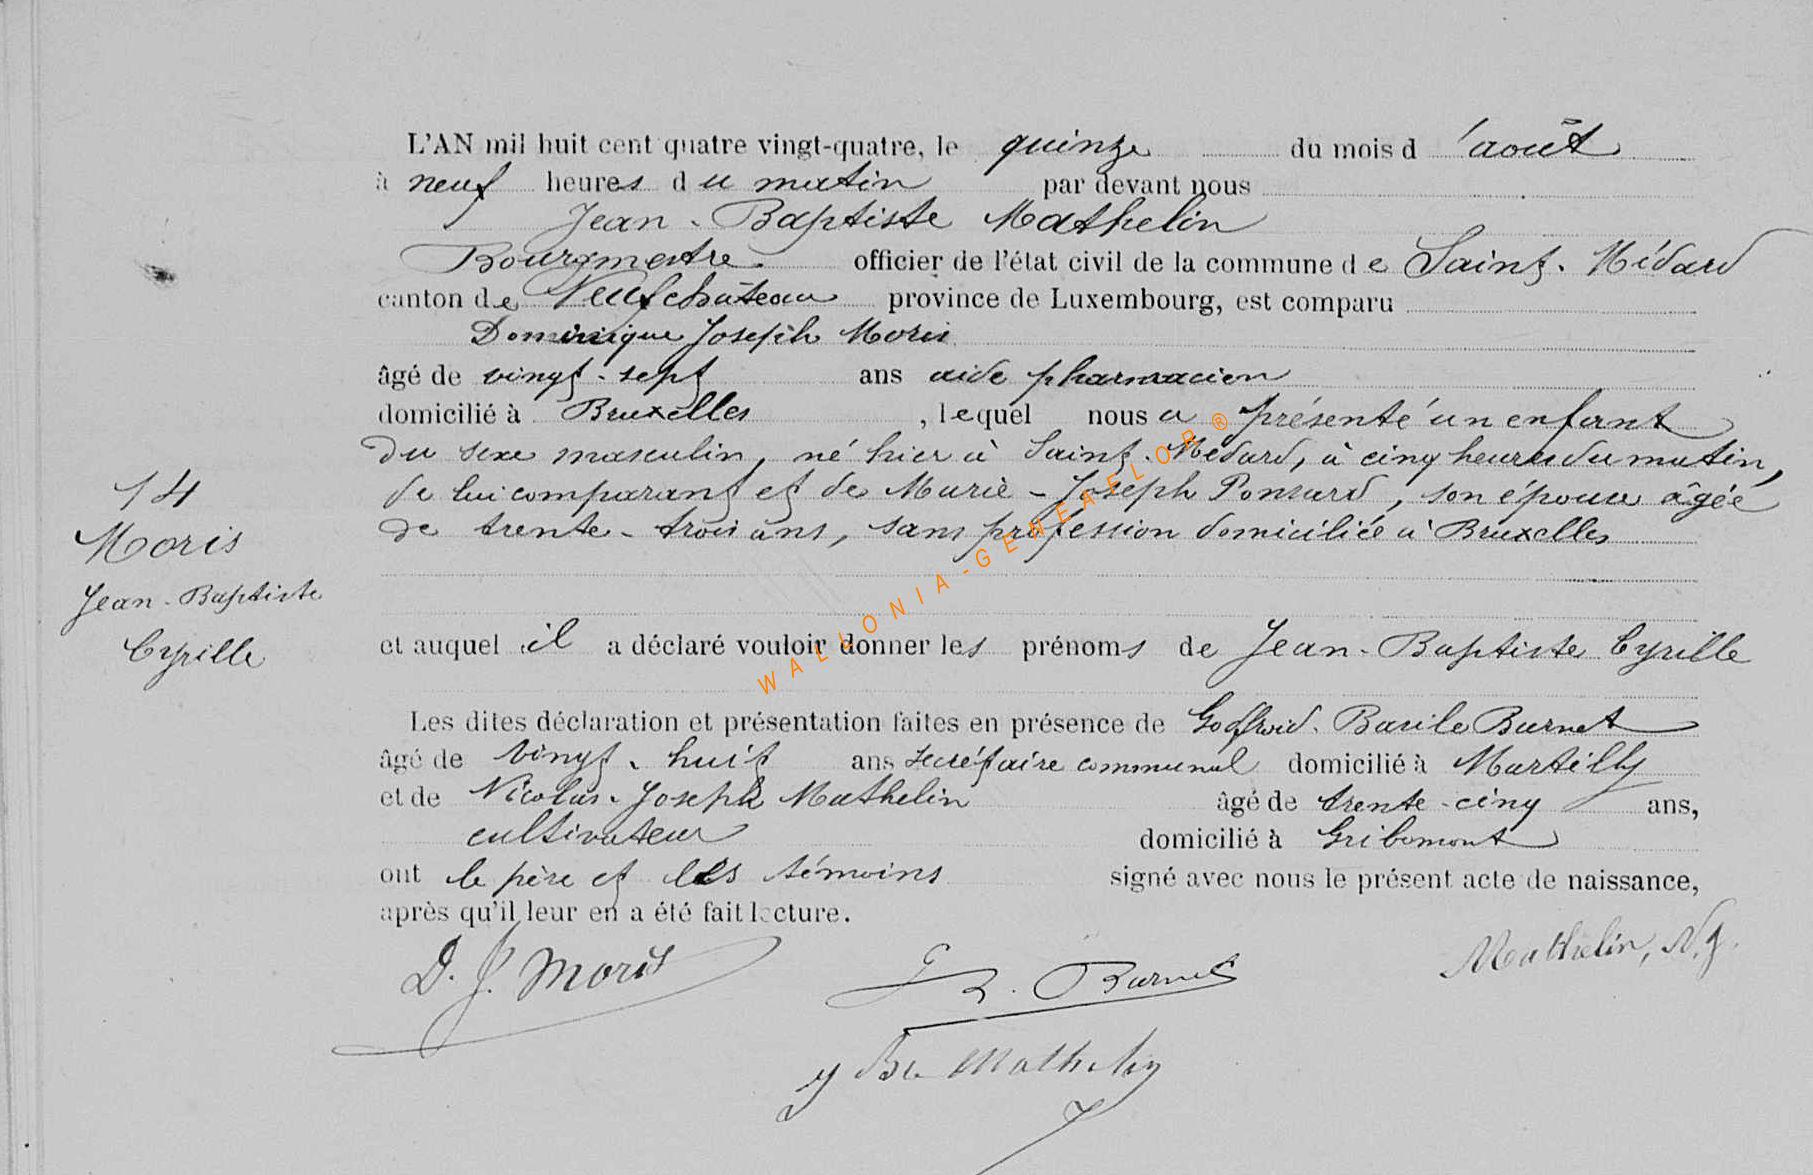 L'AN mil huit cent quatre vingt-quatre, le quinze du mois d'août
à neuf heures du matin par devant nous
Jean-Baptiste Mathelin
Bourgmestre officier de l'état civil de la commune de Saint-Médard
canton de Neufchâteau province de Luxembourg, est comparu
Dominique Joseph Moris
âgé de vingt-sept ans aide pharmacien
domicilié à Bruxelles, lequel nous a présenté un enfant
du sexe masculin, né hier à Saint-Médard, à cinq heures du matin,
de lui comparant et de Marie-Joseph Ponsard, son épouse âgée
de trente-trois ans, sans profession domiciliée à Bruxelles
14
Moris
Jean-Baptiste
Cyrille
et auquel il a déclaré vouloir donner les prénoms de Jean-Baptiste Cyrille
Les dites déclaration et présentation faites en présence de Godfroid-Basile Burnet
âgé de vingt-huit ans secrétaire communal domicilié à Martilly
et de Nicolas-Joseph Mathelin âgé de trente-cinq ans,
cultivateur domicilié à Gribomont
ont le père et les témoins signé avec nous le présent acte de naissance,
après qu'il leur en a été fait lecture.
D. J. Moris
G B. Burnet
Mathelin, N. J.
J Bte Mathelin
WALLONIA-GENEAFLOR®